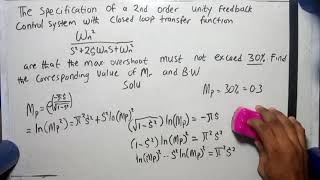 The specification of a 2nd order unity feedback
control system with closed loop transfer function
Wn²
S² + 2ζWnS + Wn²
are that the max overshoot must not exceed 30%. Find
the corresponding value of Mr and BW
Solu
Mp = e^(-πζ/√1-ζ²)
Mp = 30% = 0.3
= ln(Mp²) = π²ζ² + ζ² ln(Mp)²
(√1-ζ²) ln(Mp)² = -πζ
(1-ζ²) ln(Mp)² = π²ζ²
ln(Mp)² - ζ² ln(Mp)² = π²ζ²